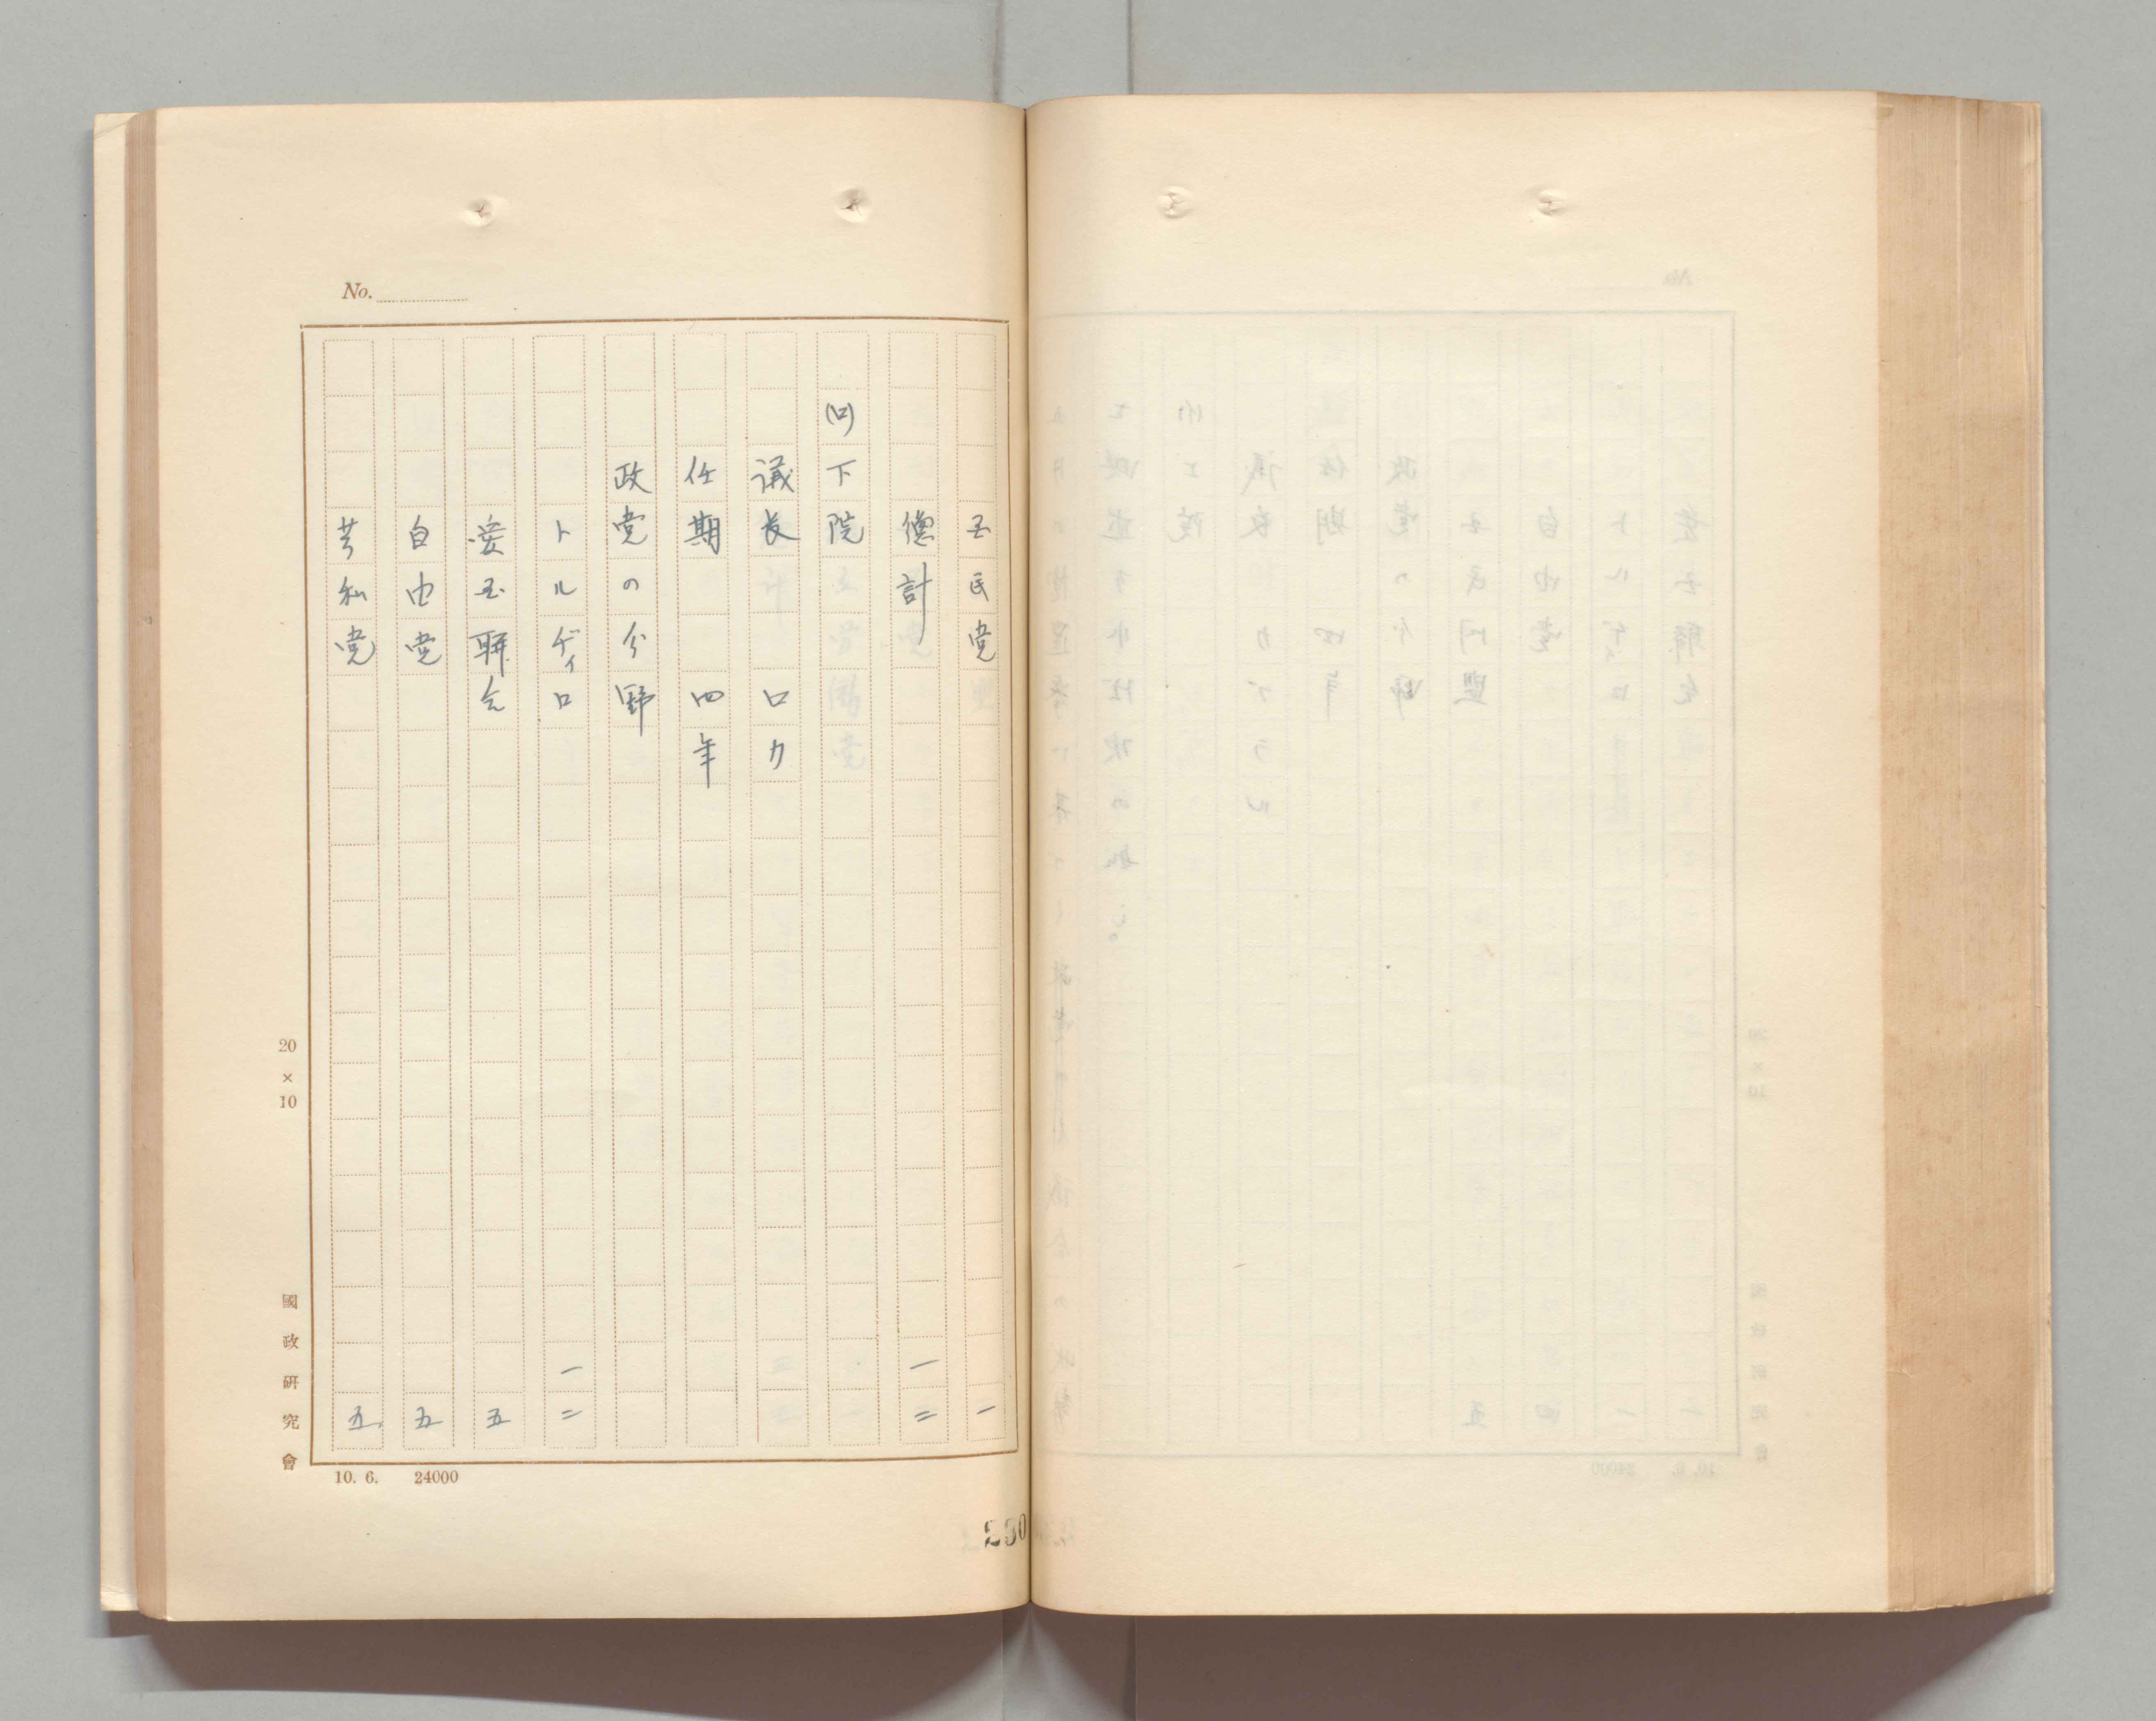 No.
国民党 一
総計 一二
(ロ)下院
議長 ロカ
任期 四年
政党の分野
トルディロ 一二
愛国聯合 五
自由党 五
共和党 五
20×10
國政研究會
10. 6. 24000
230